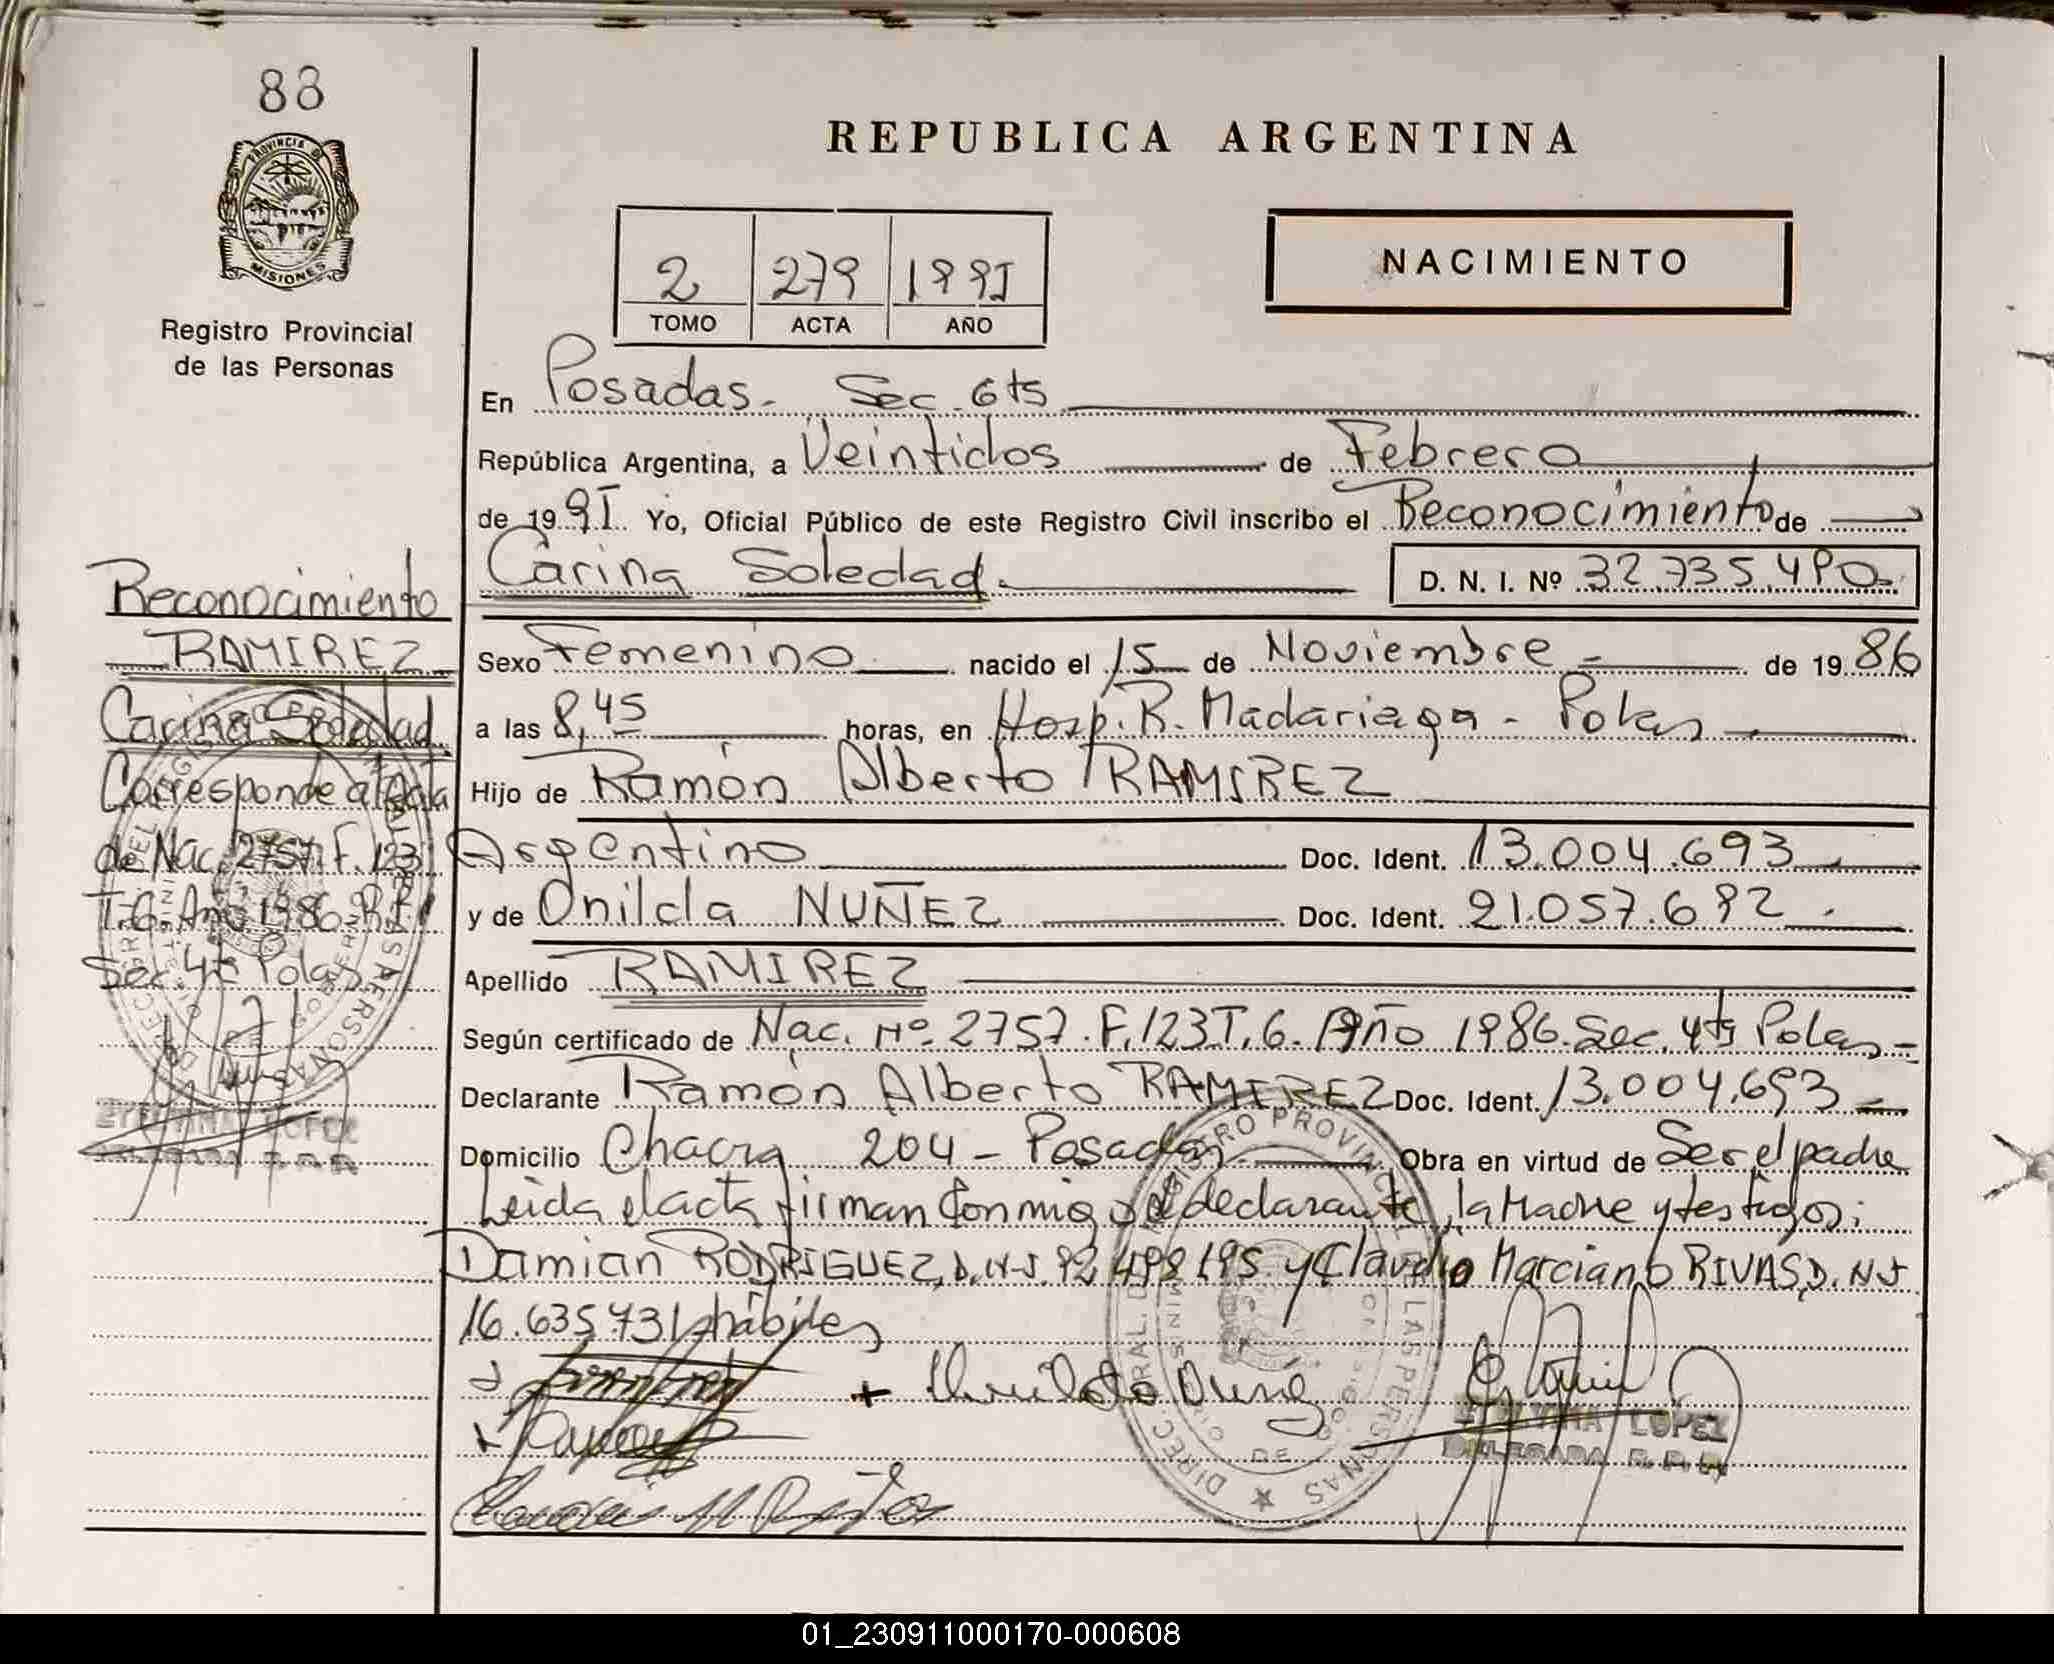 88
PROVINCIA DE
MISIONES
Registro Provincial
de las Personas
REPUBLICA ARGENTINA
2 279 1991
TOMO ACTA AÑO
NACIMIENTO
En Posadas. Sec. 6ta
República Argentina, a Veintidos de Febrero
de 1991 Yo, Oficial Público de este Registro Civil inscribo el Reconocimiento de
Carina Soledad. D. N. I. Nº 32.735.490
Sexo Femenino nacido el 15 de Noviembre de 1986
a las 8,45 horas, en Hosp. R. Madariaga - Pdas
Hijo de Ramón Alberto RAMIREZ
Argentino Doc. Ident. 13.004.693
y de Onilda NUÑEZ Doc. Ident. 21.057.692
Apellido RAMIREZ
Según certificado de Nac. Nº 2757. F. 123 T. 6. Año 1986. Sec. 4ta Pdas
Declarante Ramón Alberto RAMIREZ Doc. Ident. 13.004.693
Domicilio Chacra 204 - Posadas Obra en virtud de Ser el padre
Leida el acta firman conmigo el declarante, la Madre y testigos;
Damian RODRIGUEZ, D.N.I. 92.499.195 y Claudio Marciano RIVAS, D.N.I
16.635.731 hábiles
LOPEZ
DELEGADA R.P.P.
Reconocimiento
RAMIREZ
Carina Soledad
Corresponde al Acta
de Nac. 2757. F. 123
T. 6. Año 1986
Sec. 4ta Pdas
01_230911000170-000608